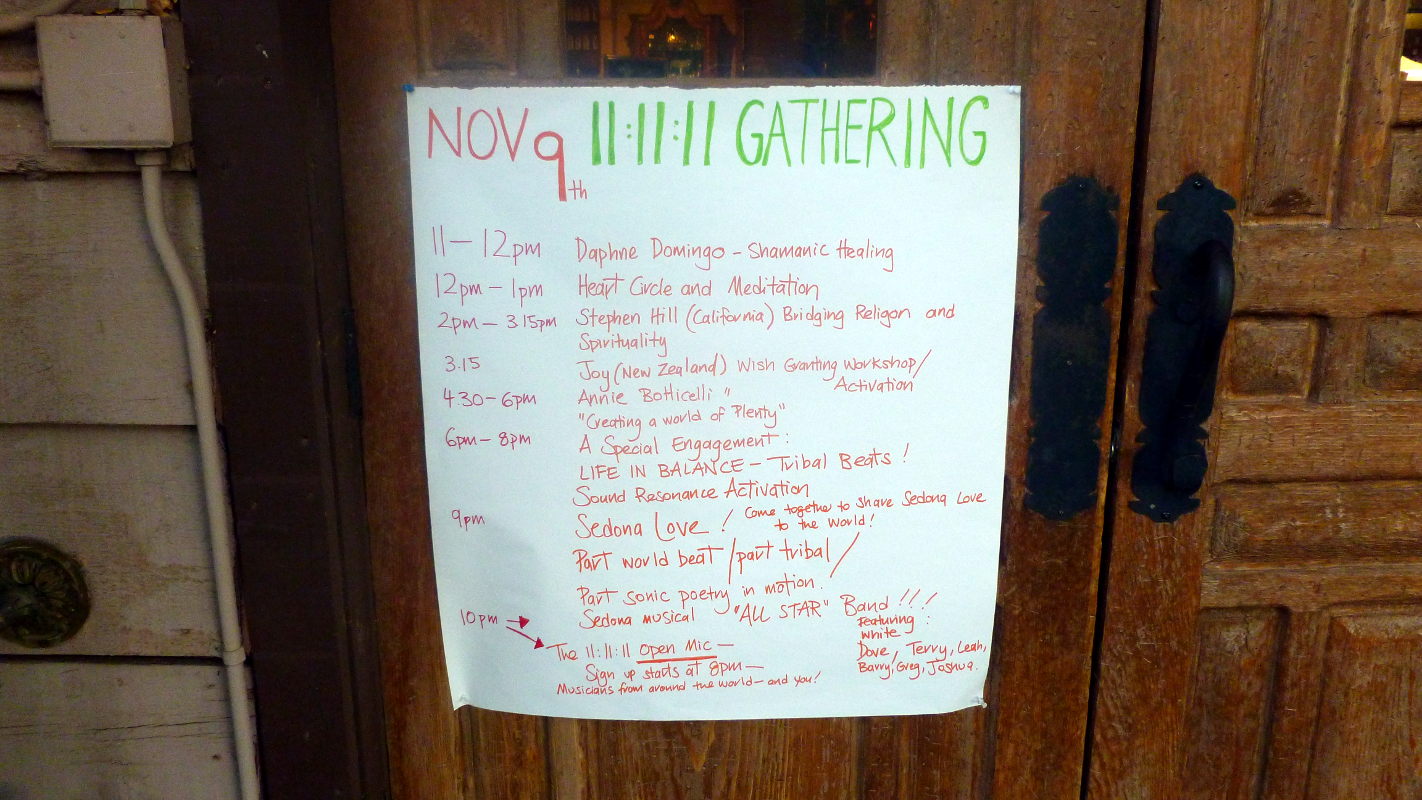 NOV 9th 11:11:11 GATHERING
11 - 12pm Daphne Domingo - Shamanic Healing
12pm - 1pm Heart Circle and Meditation
2pm - 3.15pm Stephen Hill (California) Bridging Religon and
Spirituality
3.15 Joy (New Zealand) Wish Granting Workshop/
Activation
4.30 - 6pm Annie Botticelli "
"Creating a world of Plenty"
6pm - 8pm A Special Engagement:
LIFE IN BALANCE - Tribal Beats!
Sound Resonance Activation
9pm Sedona Love! Come together to share Sedona Love
to the World!
Part world beat / part tribal /
Part sonic poetry in motion.
10pm Sedona musical "ALL STAR" Band!!!
Featuring:
White
Dove, Terry, Leah,
Barry, Greg, Joshua.
The 11:11:11 Open Mic -
Sign up starts at 8pm -
Musicians from around the world - and you!